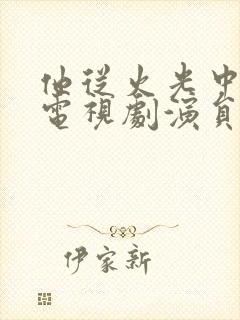 他從火光中
電視劇演員
伊家新